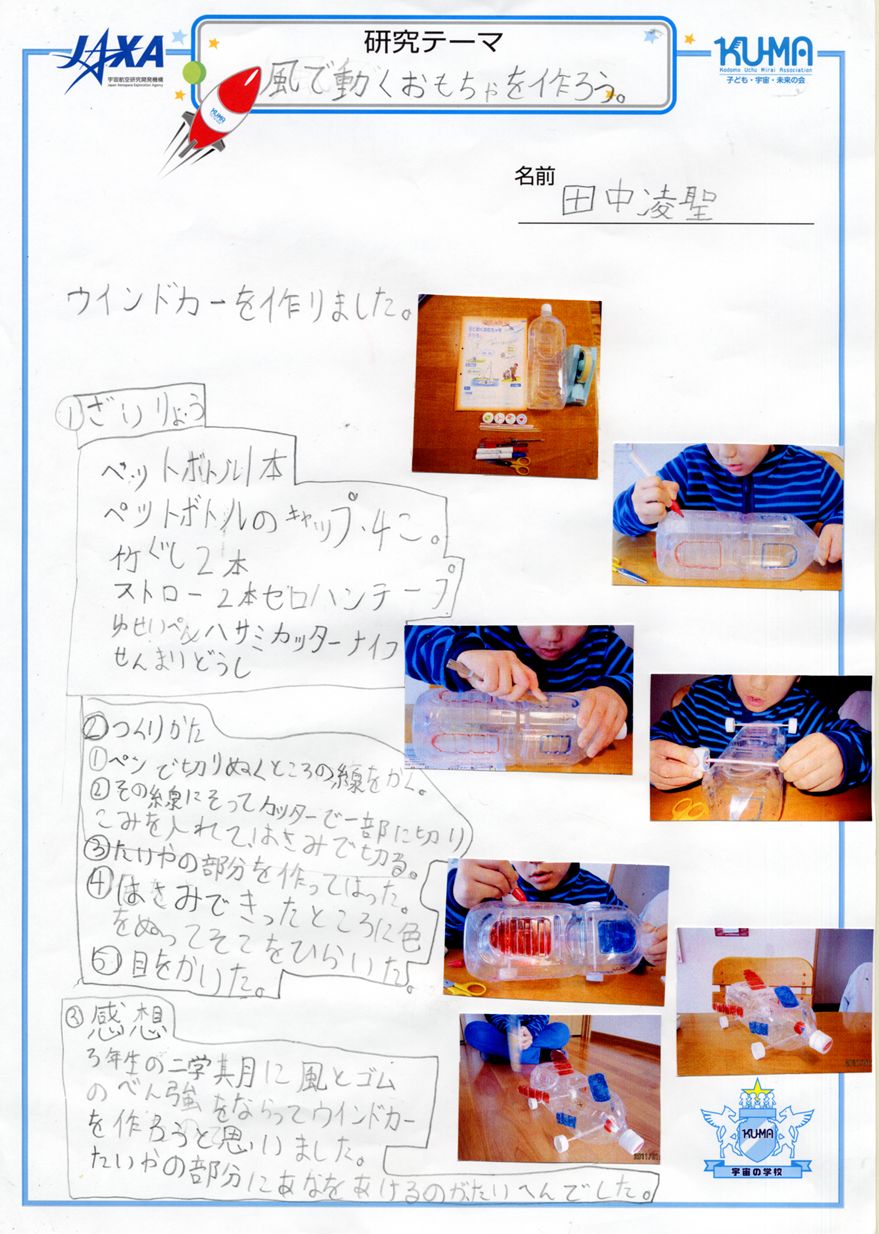 JAXA
宇宙航空研究開発機構
Japan Aerospace Exploration Agency
研究テーマ
風で動くおもちゃを作ろう。
KU-MA
Kodomo Uchu Mirai Association
子ども・宇宙・未来の会
KUMA
名前
田中凌聖
ウインドカーを作りました。
①ざいりょう
ペットボトル1本
ペットボトルのキャップ4こ。
竹ぐし2本
ストロー2本ゼロハンテープ
ゆせいペンハサミカッターナイフ
せんまりどうし
②つくりかた
①ペンで切りぬくところの線をかく。
②その線にそってカッターで一部に切り
こみを入れて、はさみで切る。
③たいやの部分を作ってはった。
④はさみできったところに色
をぬってそこをひらいた。
⑤目をかいた。
③感想
3年生の二学期に風とゴム
のべん強をならってウインドカー
を作ろうと思いました。
たいやの部分にあなをあけるのがたいへんでした。
KU-MA
宇宙の学校